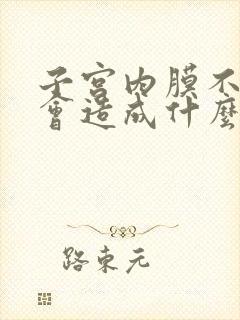 子宮內膜不
會造成什麼
路東元